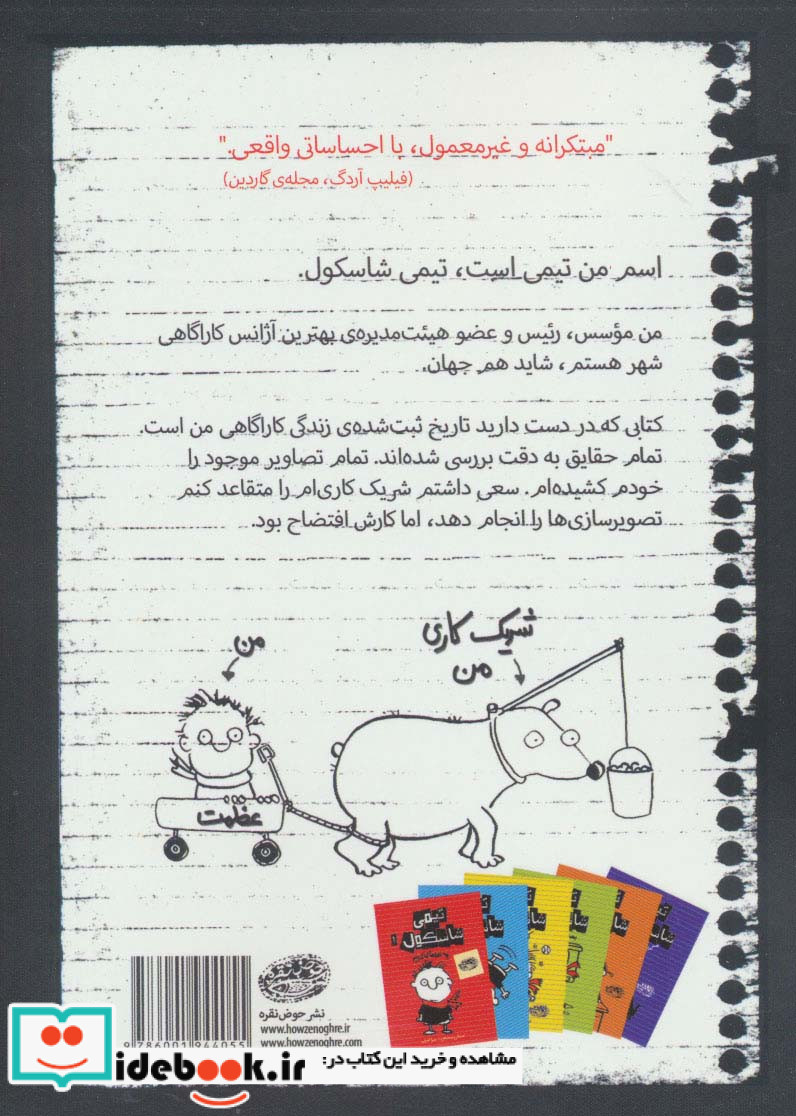 "مبتکرانه و غیرمعمول، با احساساتی واقعی."
(فیلیپ آردگ، مجله‌ی گاردین)
اسم من تیمی است، تیمی شاسکول.
من مؤسس، رئیس و عضو هیئت‌مدیره‌ی بهترین آژانس کاراگاهی
شهر هستم، شاید هم جهان.
کتابی که در دست دارید تاریخ ثبت‌شده‌ی زندگی کاراگاهی من است.
تمام حقایق به دقت بررسی شده‌اند. تمام تصاویر موجود را
خودم کشیده‌ام. سعی داشتم شریک کاری‌ام را متقاعد کنم
تصویرسازی‌ها را انجام دهد، اما کارش افتضاح بود.
شریک کاری
من
من
عظمت
تیمی
شاسکول ۱
نشر حوض نقره
www.howzenoghre.ir
www.howzenoghre.com
9786001944055
مشاهده و خرید این کتاب در:
idebook.ir